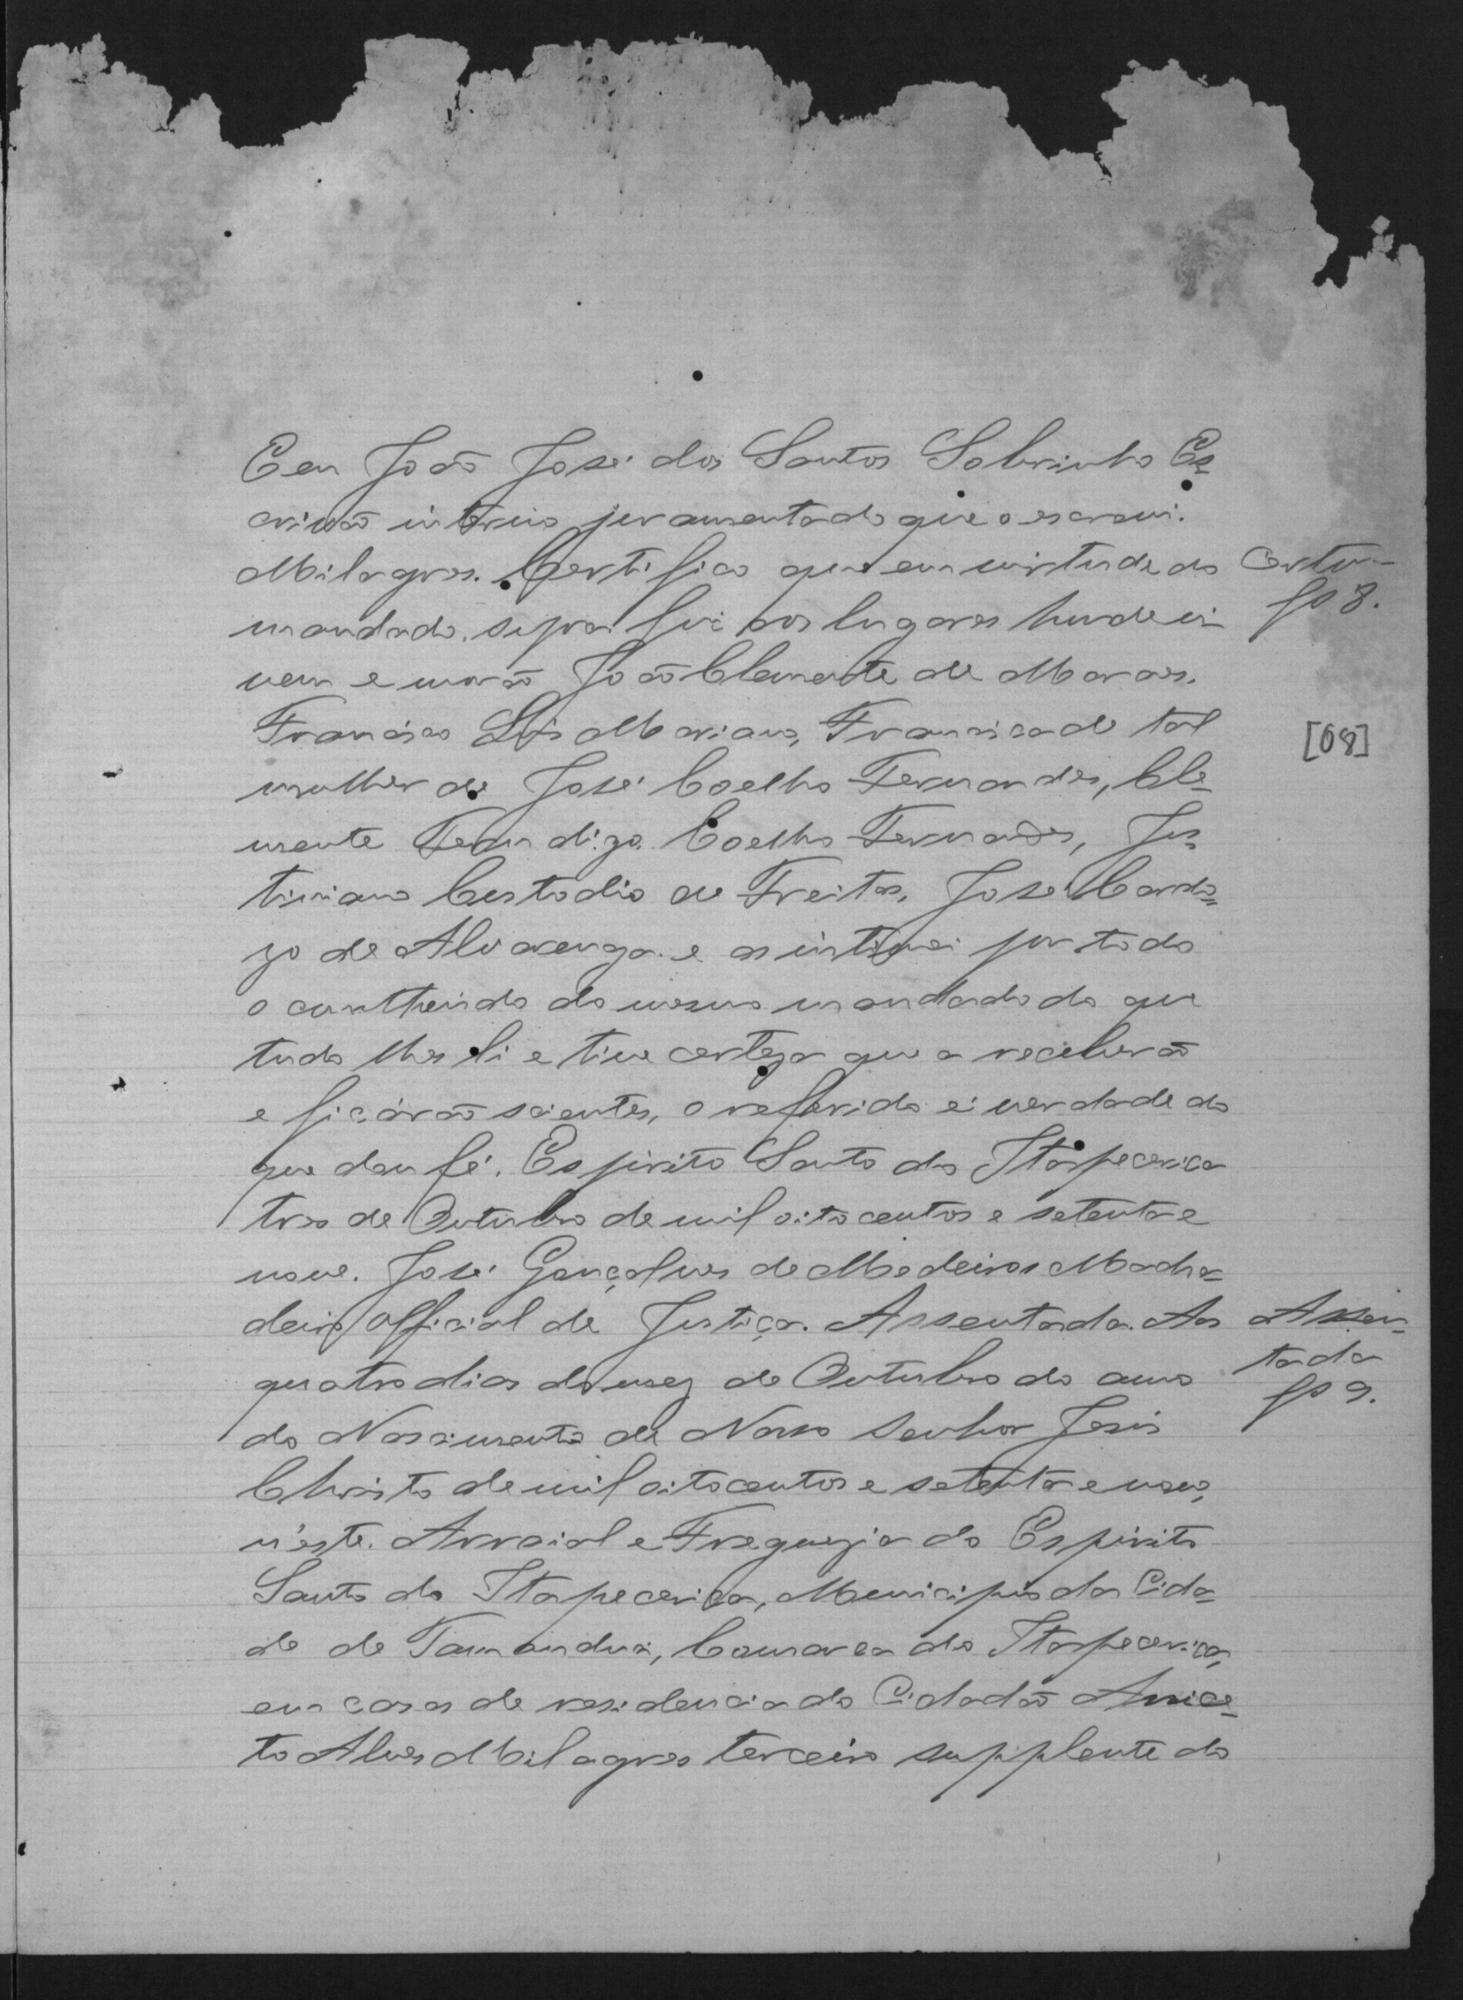 Eeu João José dos Santos Sobrinho Es-
crivão interino juramentado que o escrevi.
Milagres. Certifico que em virtude do
mandado supra fui aos lugares hunde vi-
vem e morão João Clemente de Moraes.
Francisco Luis Mariano, Francisca de tal
mulher de José Coelho Fernandes, Cle-
mente Coelho Fernandes, Jus-
tiniano Custodio de Freitas, José Cardo-
zo de Alvarenga e os intimei por todo
o contheudo do mesmo mandado do que
tudo lhes li e tive certeza que a receberão
e ficárão scientes, o referido é verdade do
que dou fé. Espirito Santo do Itapecerica
tres de Outubro de mil oito centos e setenta e
nove. José Gonçalves de Medeiros Macha-
deiro Official de Justiça. Assentada. Aos
quatro dias do mez de Outubro do anno
do Nascimento de Nosso Senhor Jesus
Christo de mil oitocentos e setenta e nove,
n'este Arraial e Freguezia do Espirito
Santo do Itapecerica, Municipio da Cida-
de de Tamanduá, Comarca do Itapecerica,
em casas de residencia do Cidadão Anice-
to Alves Milagres terceiro supplente do
fs 8.
[08]
Assen-
tada
fs 9.